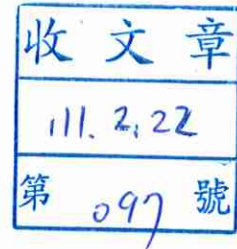 收文章
111.2.22
第 097 號